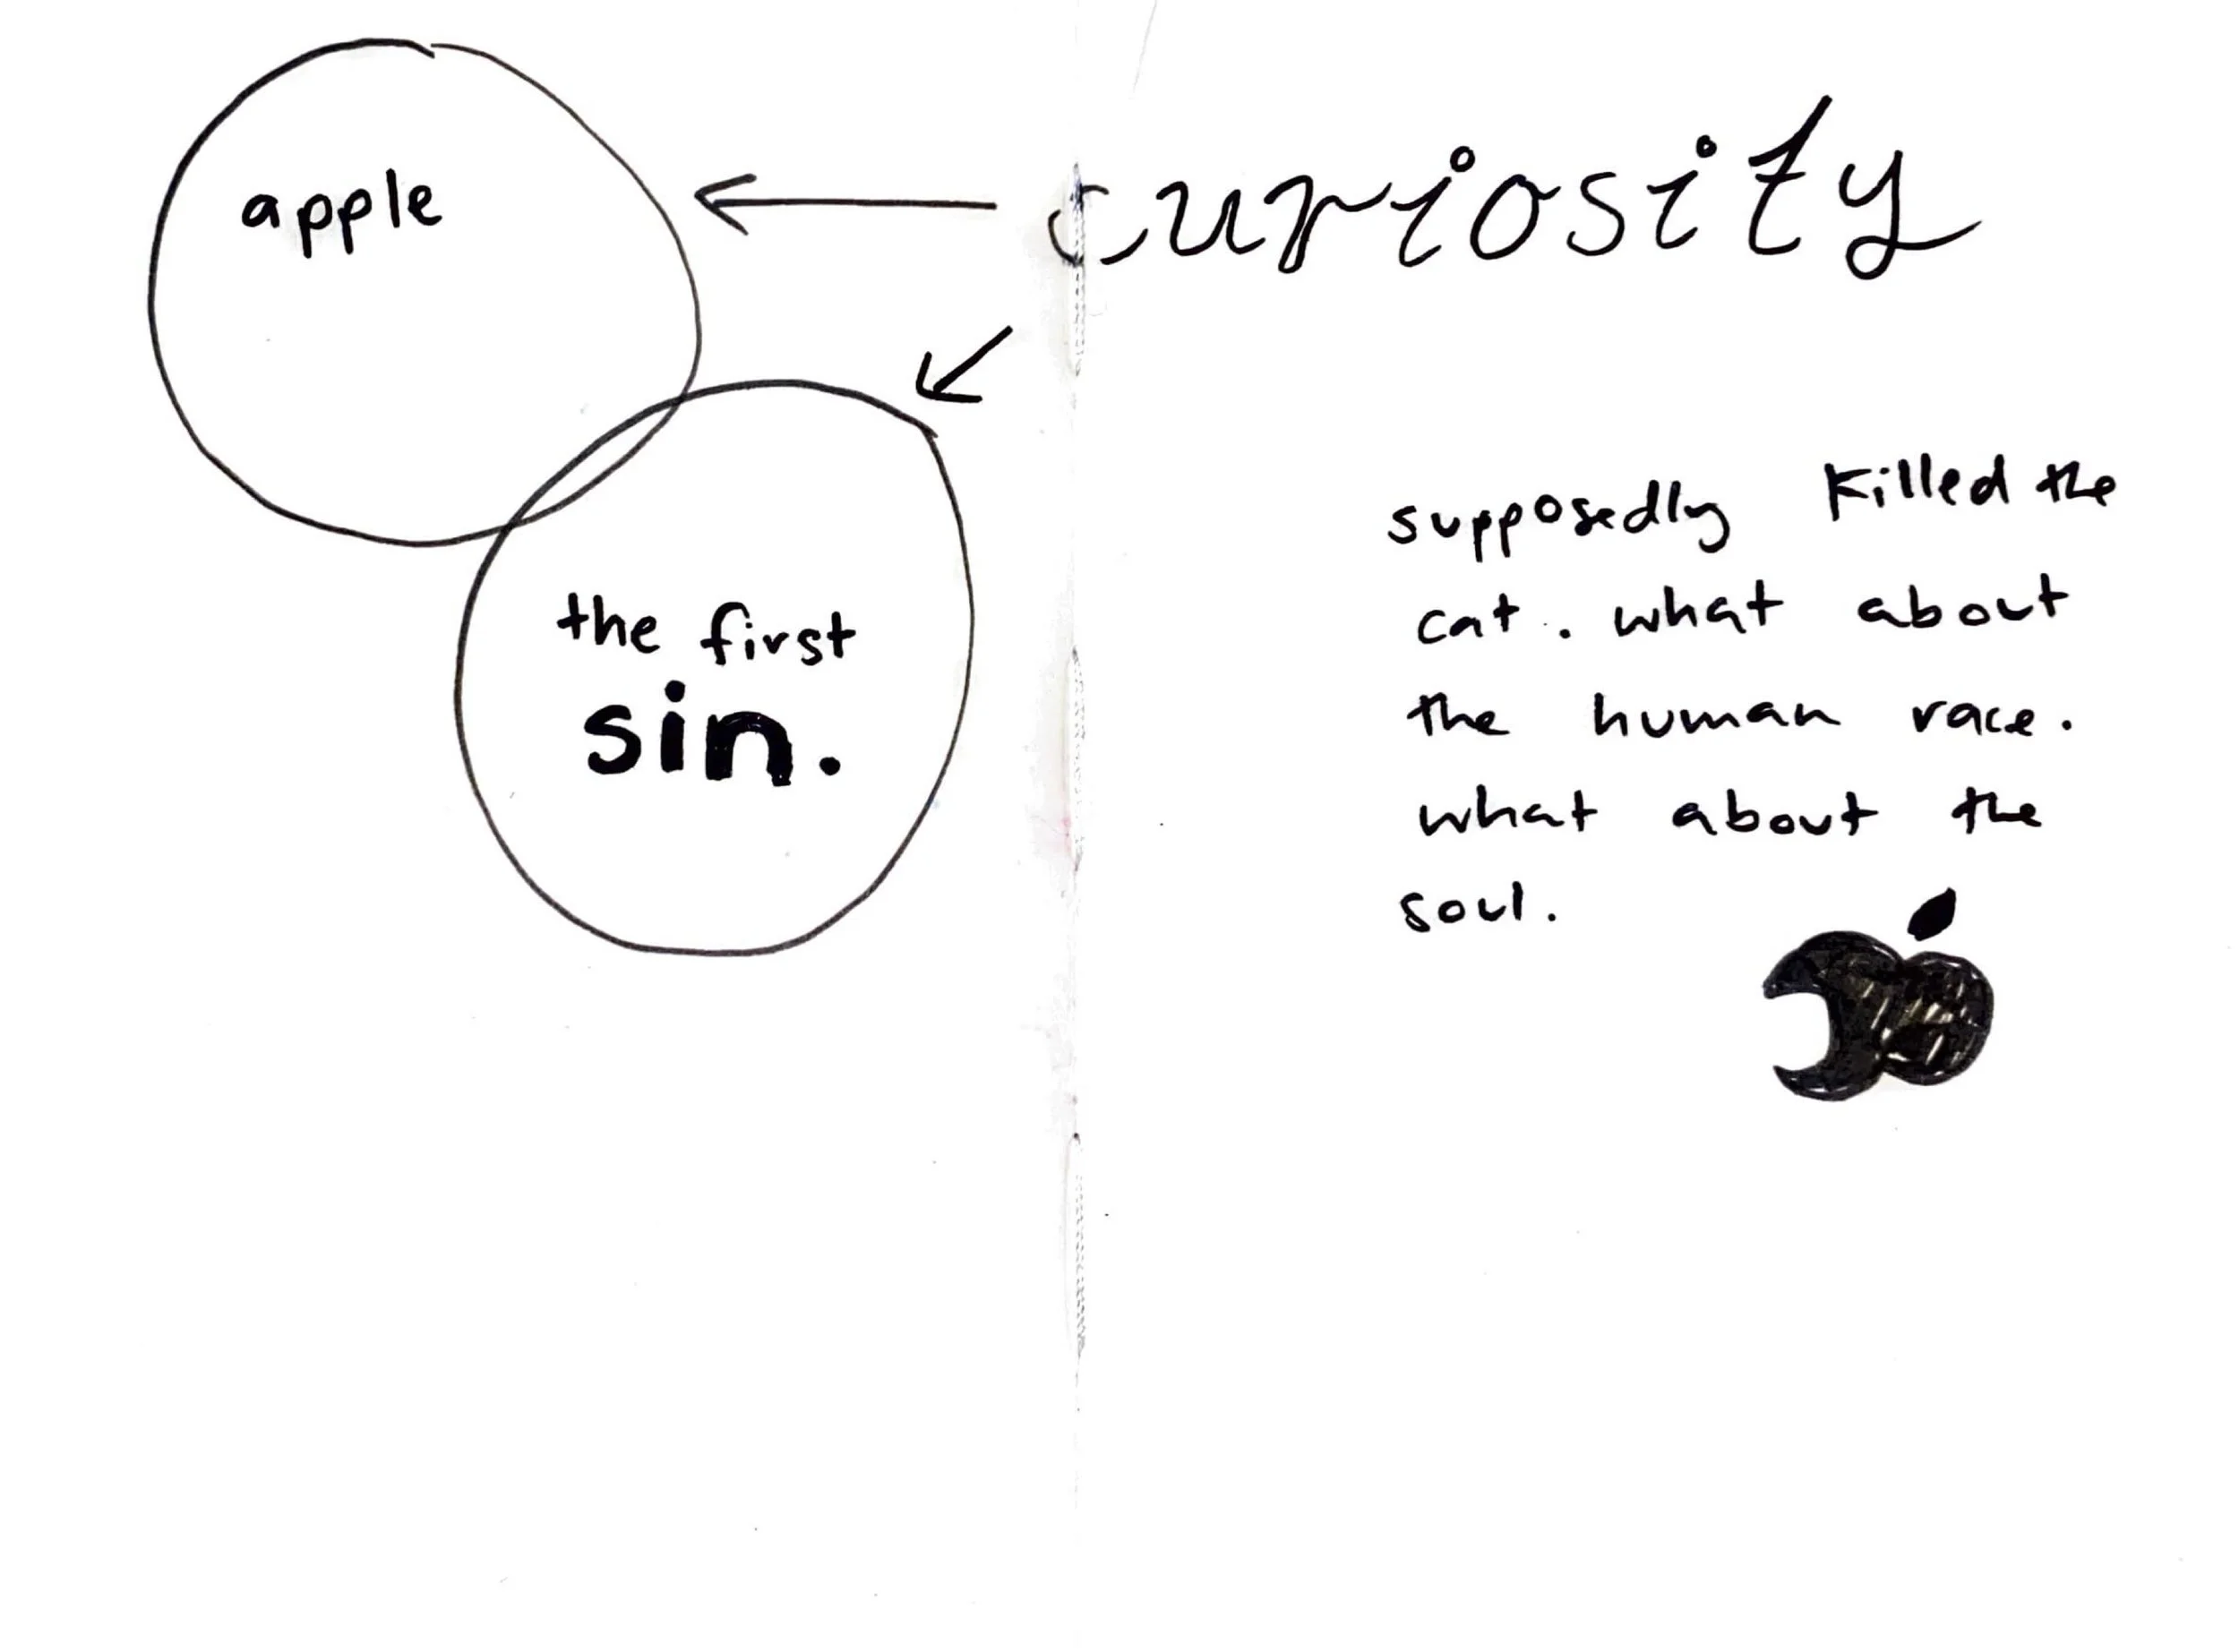 apple
curiosity
the first
sin.
supposedly killed the
cat. what about
the human race.
what about the
soul.